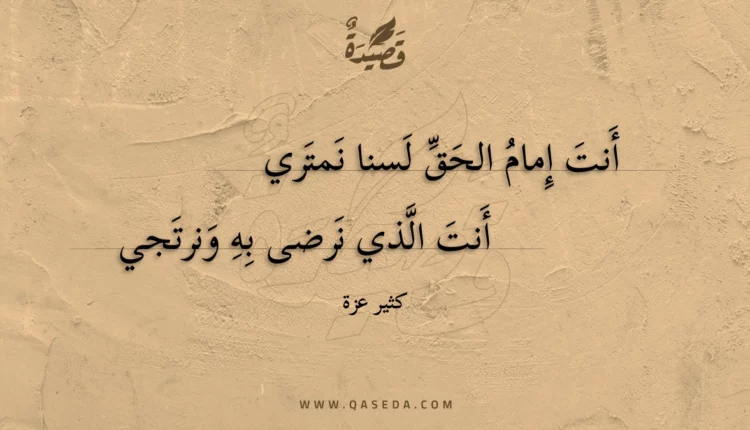 قَصِيدَةٌ
أَنتَ إِمامُ الحَقِّ لَسنا نَمتَري
أَنتَ الَّذي نَرضى بِهِ وَنرتَجي
كثير عزة
WWW.QASEDA.COM